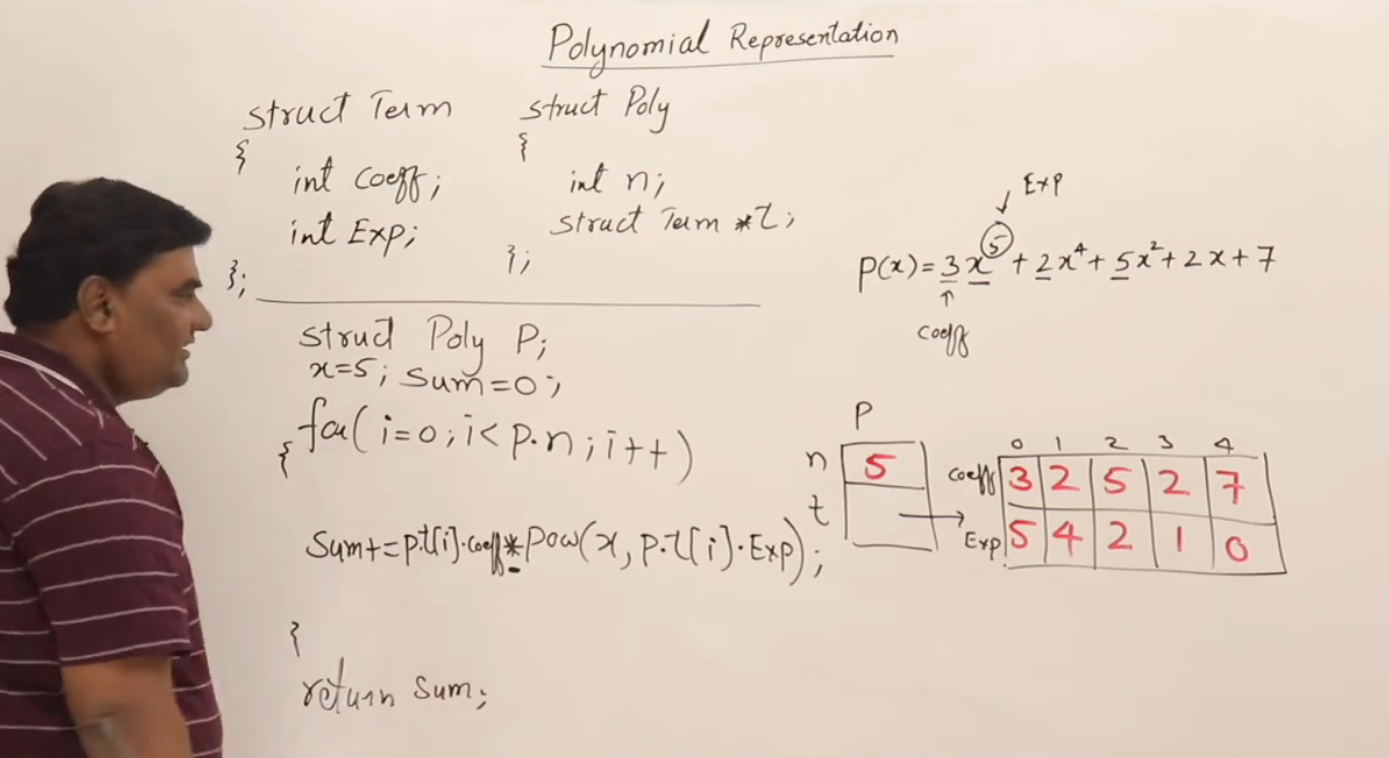 Polynomial Representation
struct Term
{
int coeff;
int Exp;
};
struct Poly
{
int n;
struct Term *t;
};
struct Poly P;
x=5; sum=0;
for(i=0;i<p.n;i++)
{
Sum+=p.t[i].coeff*pow(x,p.t[i].Exp);
}
return sum;
Exp
P(x)=3x⁵+2x⁴+5x²+2x+7
↑
coeff
P
n 5
t
0 1 2 3 4
coeff 3 2 5 2 7
Exp 5 4 2 1 0